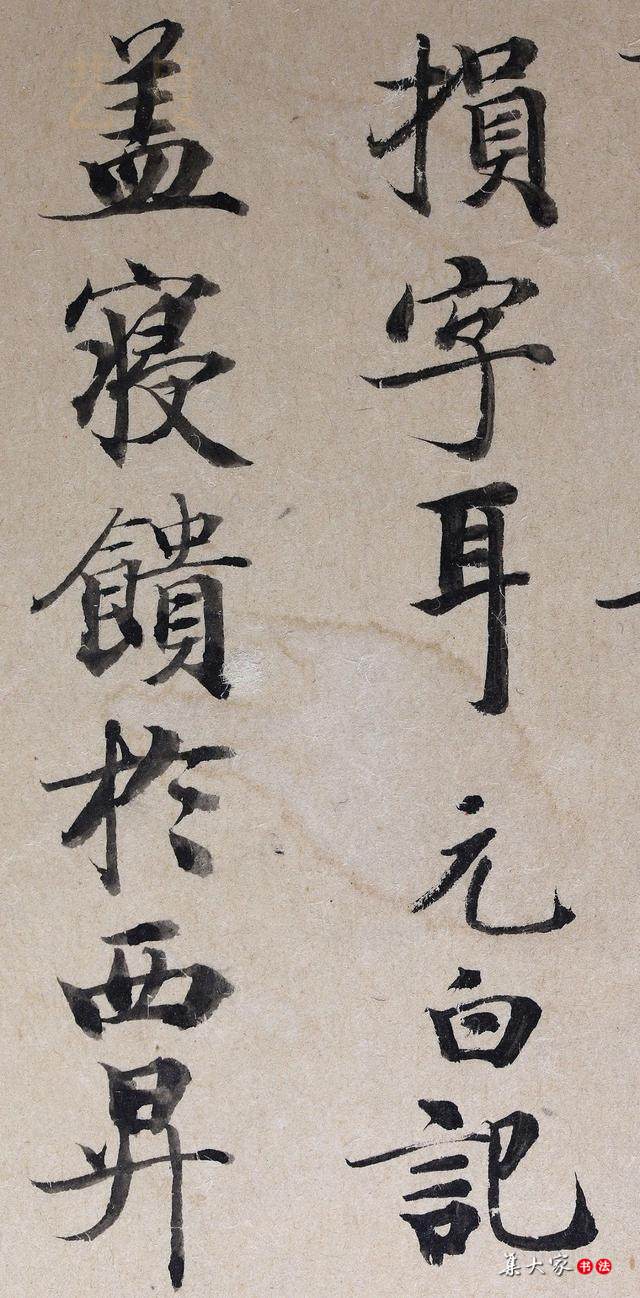 損字耳 元白記
盖寝饋於西昇
集大家书法